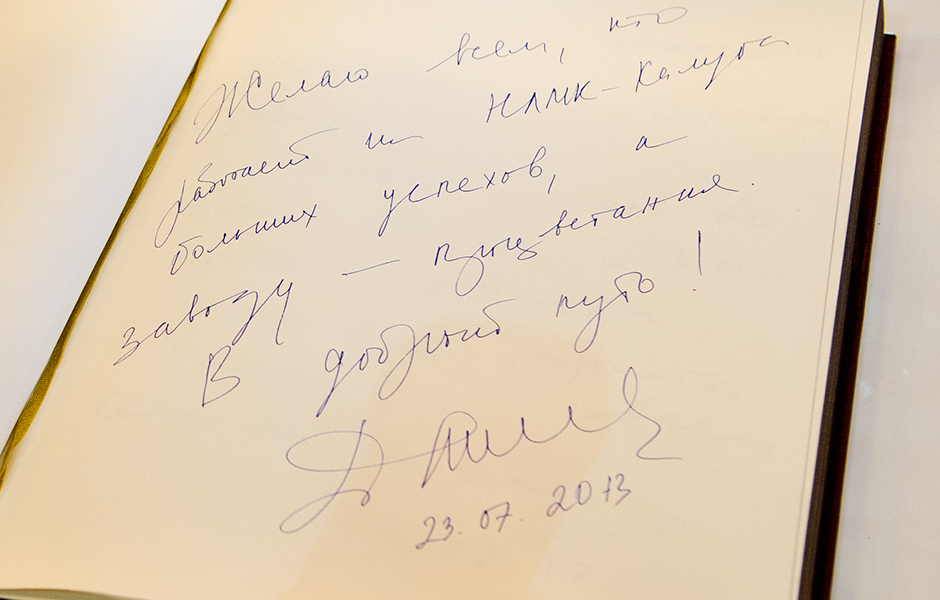 Желаю всем, кто
работает на НЛМК-Калуга
больших успехов, а
заводу — процветания.
В добрый путь!
23.07.2013